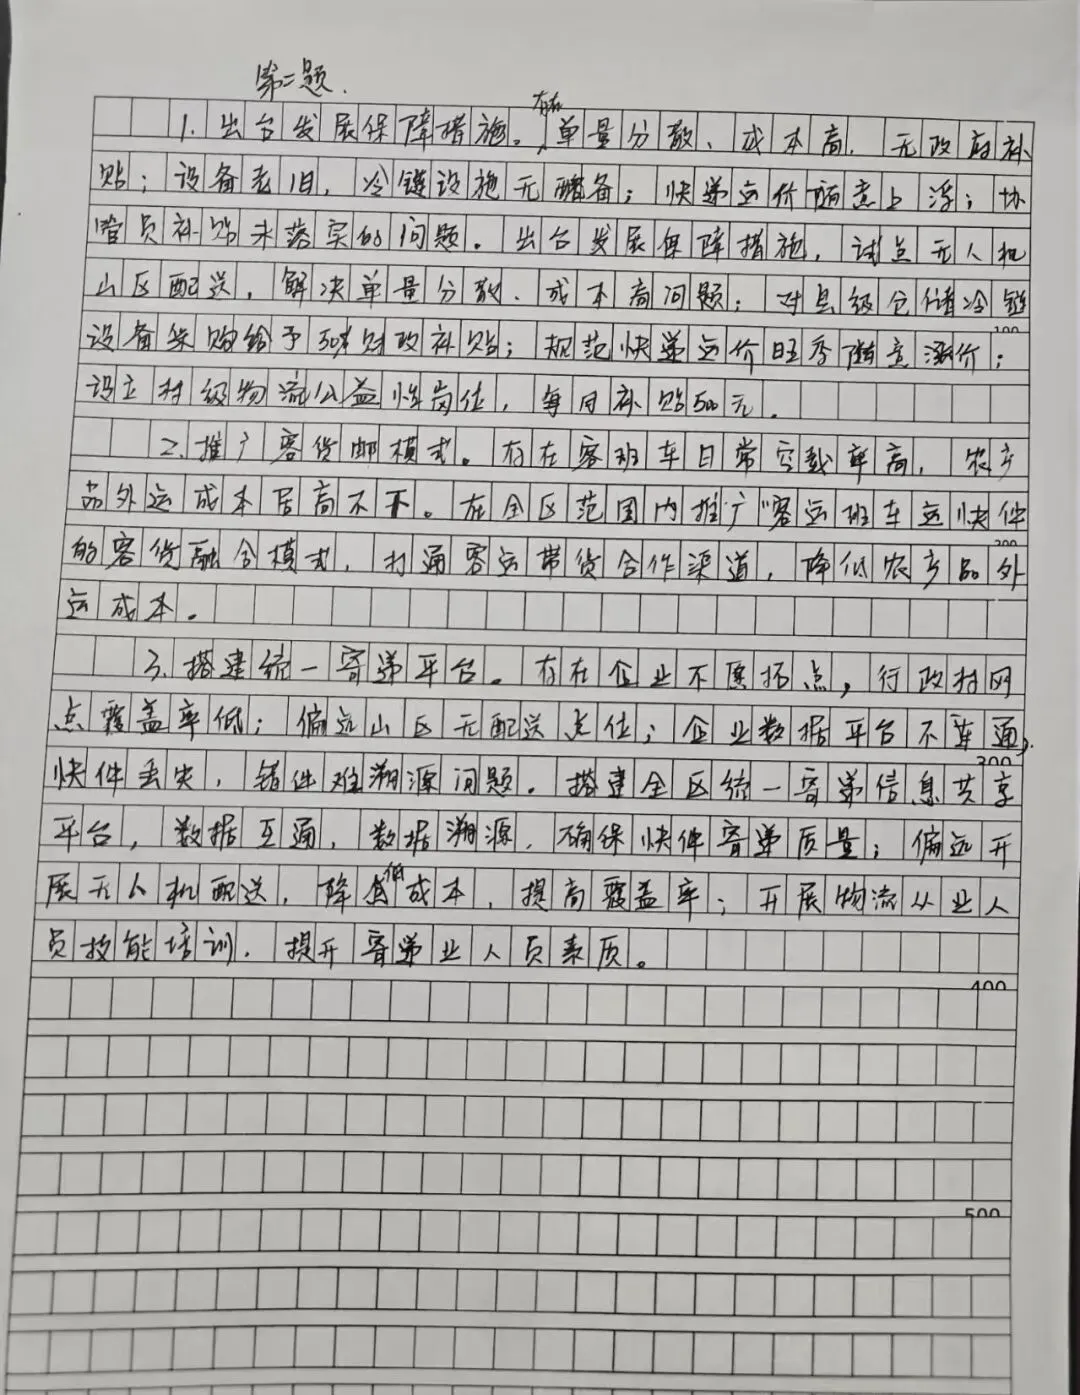 第二题.
1.出台发展保障措施。存在单量分散、成本高,无政府补
贴;设备老旧,冷链设施无储备;快递运价随意上浮;协
管员补贴未落实的问题。出台发展保障措施,试点无人机
山区配送,解决单量分散、成本高问题;对县级仓储冷链
100
设备采购给予50%财政补贴;规范快递运价旺季随意涨价;
设立村级物流公益性岗位,每月补贴500元.
2.推广客货邮模式。存在客班车日常空载率高,农产
品外运成本居高不下。在全区范围内推广“客运班车运快件
200
的客货融合模式,打通客运带货合作渠道,降低农产品外
运成本。
3.搭建统一寄递平台。存在企业不愿拓点,行政村网
点覆盖率低;偏远山区无配送点位;企业数据平台不连通,
300
快件丢失,错件难溯源问题。搭建全区统一寄递信息共享
平台,数据互通,数据溯源,确保快件寄递质量;偏远开
展无人机配送,降低成本,提高覆盖率;开展物流从业人
员技能培训,提升寄递业人员素质。
400
500